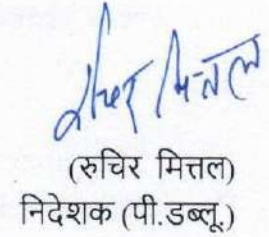 रुचिर मित्तल
(रुचिर मित्तल)
निदेशक (पी.डब्लू.)